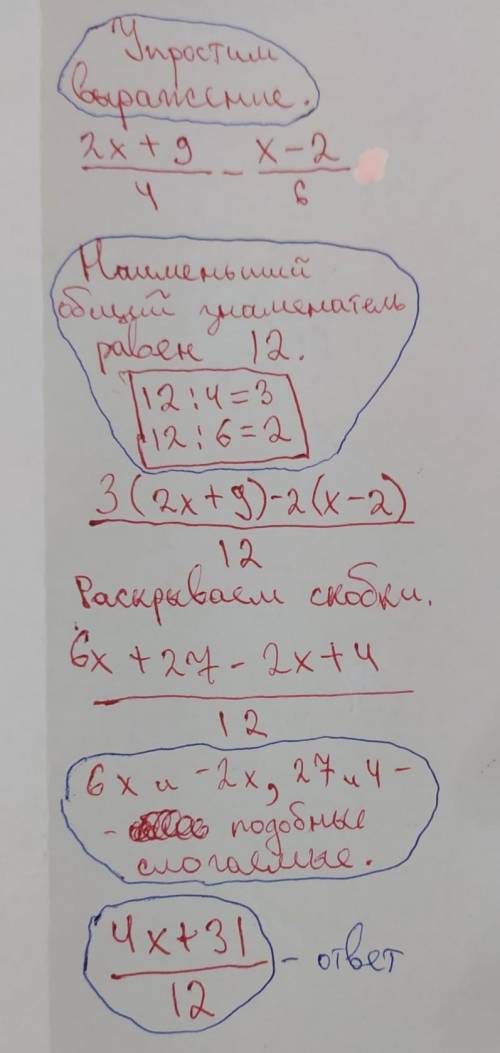 Упростим
выражение.
2x + 9 / 4 - x - 2 / 6
Наименьший
общий знаменатель
равен 12.
12 : 4 = 3
12 : 6 = 2
3(2x + 9) - 2(x - 2)
12
Раскрываем скобки.
6x + 27 - 2x + 4
12
6x и -2x, 27 и 4 -
- подобные
слогаемые.
4x + 31 / 12 - ответ